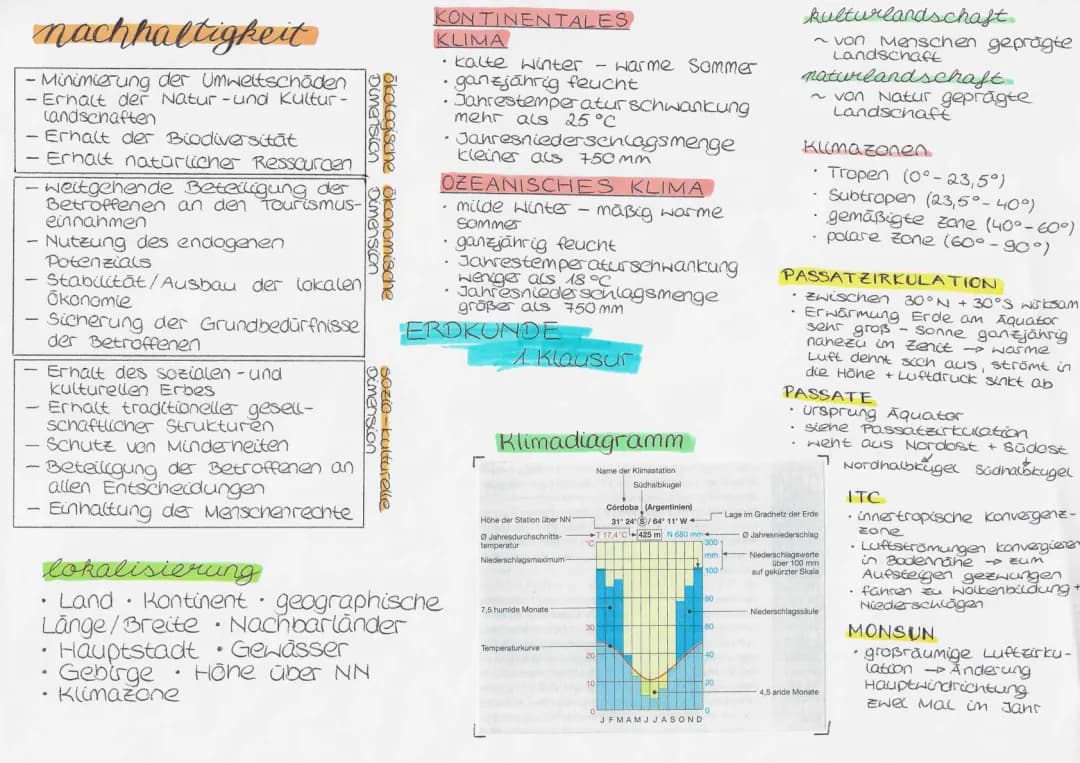 nachhaltigkeit
- Minimierung der Umweltschäden
- Erhalt der Natur- und Kultur-
landschaften
- Erhalt der Biodiversität
- Erhalt natürlicher Ressourcen
ökologische
Dimension
- weitgehende Beteiligung der
Betroffenen an den Tourismus-
einnahmen
- Nutzung des endogenen
Potenzials
- Stabilität/Ausbau der lokalen
Ökonomie
- Sicherung der Grundbedürfnisse
der Betroffenen
ökonomische
Dimension
- Erhalt des sozialen - und
kulturellen Erbes
- Erhalt traditioneller gesell-
schaftlicher Strukturen
- Schutz von Minderheiten
- Beteiligung der Betroffenen an
allen Entscheidungen
- Einhaltung der Menschenrechte
sozio-kulturelle
Dimension
lokalisierung
• Land • Kontinent • geographische
Länge/Breite • Nachbarländer
• Hauptstadt • Gewässer
• Gebirge • Höhe über NN
• Klimazone
KONTINENTALES
KLIMA
• kalte Winter – warme Sommer
• ganzjährig feucht
• Jahrestemperaturschwankung
mehr als 25°C
• Jahresniederschlagsmenge
kleiner als 750 mm
OZEANISCHES KLIMA
• milde Winter – mäßig warme
Sommer
• ganzjährig feucht
• Jahrestemperaturschwankung
weniger als 18°C
• Jahresniederschlagsmenge
größer als 750 mm
ERDKUNDE
1 Klausur
Klimadiagramm
Name der Klimastation
Südhalbkugel
Córdoba (Argentinien)
Höhe der Station über NN
31° 24' S / 64° 11' W
Lage im Gradnetz der Erde
Ø Jahresdurchschnitts-
temperatur
T 17,4°C 425 m N 680 mm
Ø Jahresniederschlag
°C
300
mm
100
Niederschlagsmaximum
Niederschlagswerte
über 100 mm
auf gekürzter Skala
80
7,5 humide Monate
Niederschlagssäule
30
60
Temperaturkurve
20
40
10
20
4,5 aride Monate
0
0
J F M A M J J A S O N D
kulturlandschaft
~ von Menschen geprägte
Landschaft
naturlandschaft
~ von Natur geprägte
Landschaft
Klimazonen
• Tropen (0° - 23,5°)
• Subtropen (23,5° - 40°)
• gemäßigte Zone (40° - 60°)
• polare Zone (60° - 90°)
PASSATZIRKULATION
• zwischen 30°N + 30°S wirksam
• Erwärmung Erde am Äquator
sehr groß – Sonne ganzjährig
nahezu im Zenit → warme
Luft dehnt sich aus, strömt in
die Höhe + Luftdruck sinkt ab
PASSATE
• Ursprung Äquator
• siehe Passatzirkulation
• weht aus Nordost + Südost
Nordhalbkugel Südhalbkugel
ITC
• innertropische Konvergenz-
zone
• Luftströmungen konvergieren
in Bodennähe → zum
Aufsteigen gezwungen
• führen zu Wolkenbildung +
Niederschlägen
MONSUN
• großräumige Luftzirku-
lation → Änderung
Hauptwindrichtung
zwei Mal im Jahr